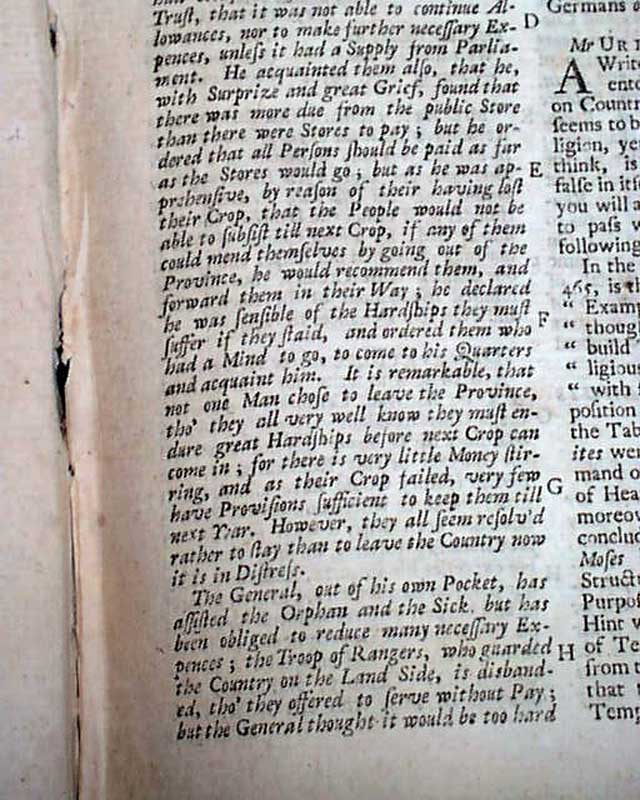 Trust, that it was not able to continue Al-
lowances, nor to make further necessary Ex-
pences, unless it had a Supply from Parlia-
ment. He acquainted them also, that he,
with Surprize and great Grief, found that
there was more due from the public Store
than there were Stores to pay; but he or-
dered that all Persons should be paid as far
as the Stores would go; but as he was ap-
prehensive, by reason of their having lost
their Crop, that the People would not be
able to subsist till next Crop, if any of them
could mend themselves by going out of the
Province, he would recommend them, and
forward them in their Way; he declared
he was sensible of the Hardships they must
suffer if they staid, and ordered them who
had a Mind to go, to come to his Quarters
and acquaint him. It is remarkable, that
not one Man chose to leave the Province,
tho' they all very well know they must en-
dure great Hardships before next Crop can
come in; for there is very little Money stir-
ring, and as their Crop failed, very few
have Provisions sufficient to keep them till
next Year. However, they all seem resolv'd
rather to stay than to leave the Country now
it is in Distress.
The General, out of his own Pocket, has
assisted the Orphan and the Sick, but has
been obliged to reduce many necessary Ex-
pences; the Troop of Rangers, who guarded
the Country on the Land Side, is disband-
ed, tho' they offered to serve without Pay;
but the General thought it would be too hard
D
E
F
G
H
Germans
Mr UR
A Write
on Countr
seems to b
ligion, ye
think, is
false in it
you will a
to pass w
following
In the
465, is th
" Examp
" thoug
" build
" ligious
" with
position
the Tab
ites wer
mand o
of Hea
moreov
conclu
Moses
Struct
Purpos
Hint w
of Te
from t
that
Temp